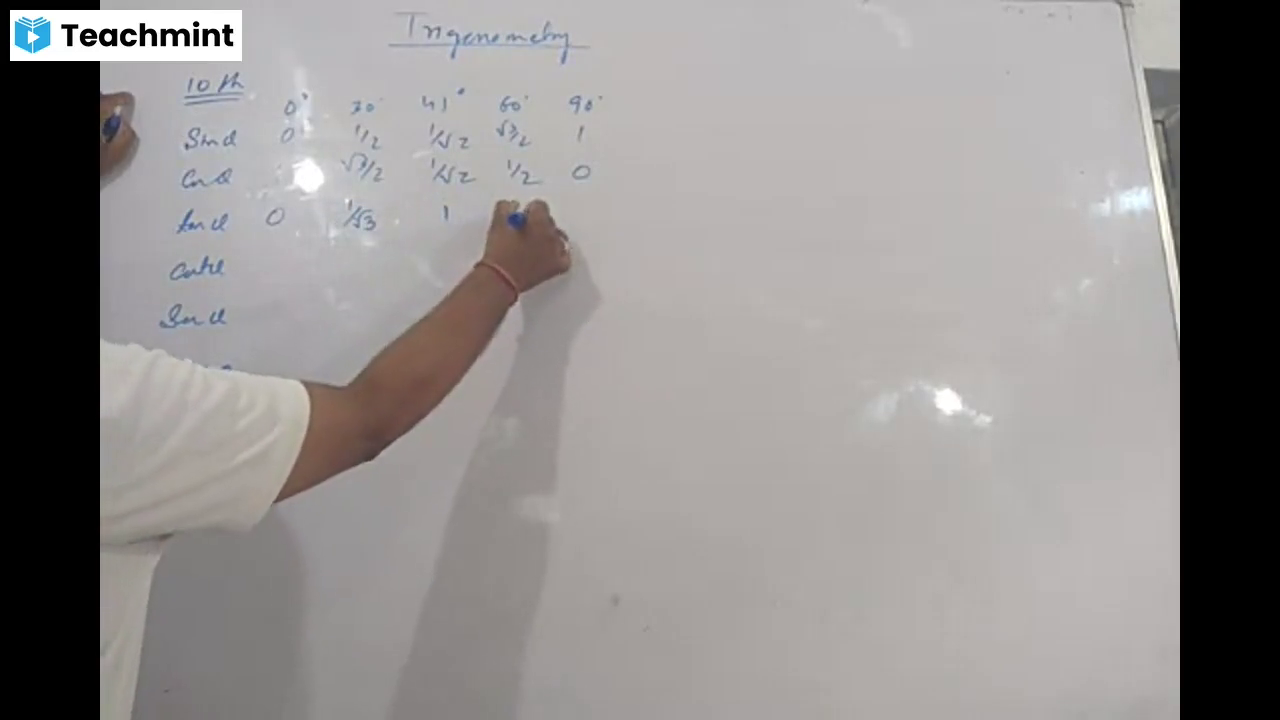 Teachmint
Trigonometry
10th
0° 30° 45° 60° 90°
Sinθ 0 1/2 1/√2 √3/2 1
Cosθ √3/2 1/√2 1/2 0
tanθ 0 1/√3 1
Cotθ
Secθ